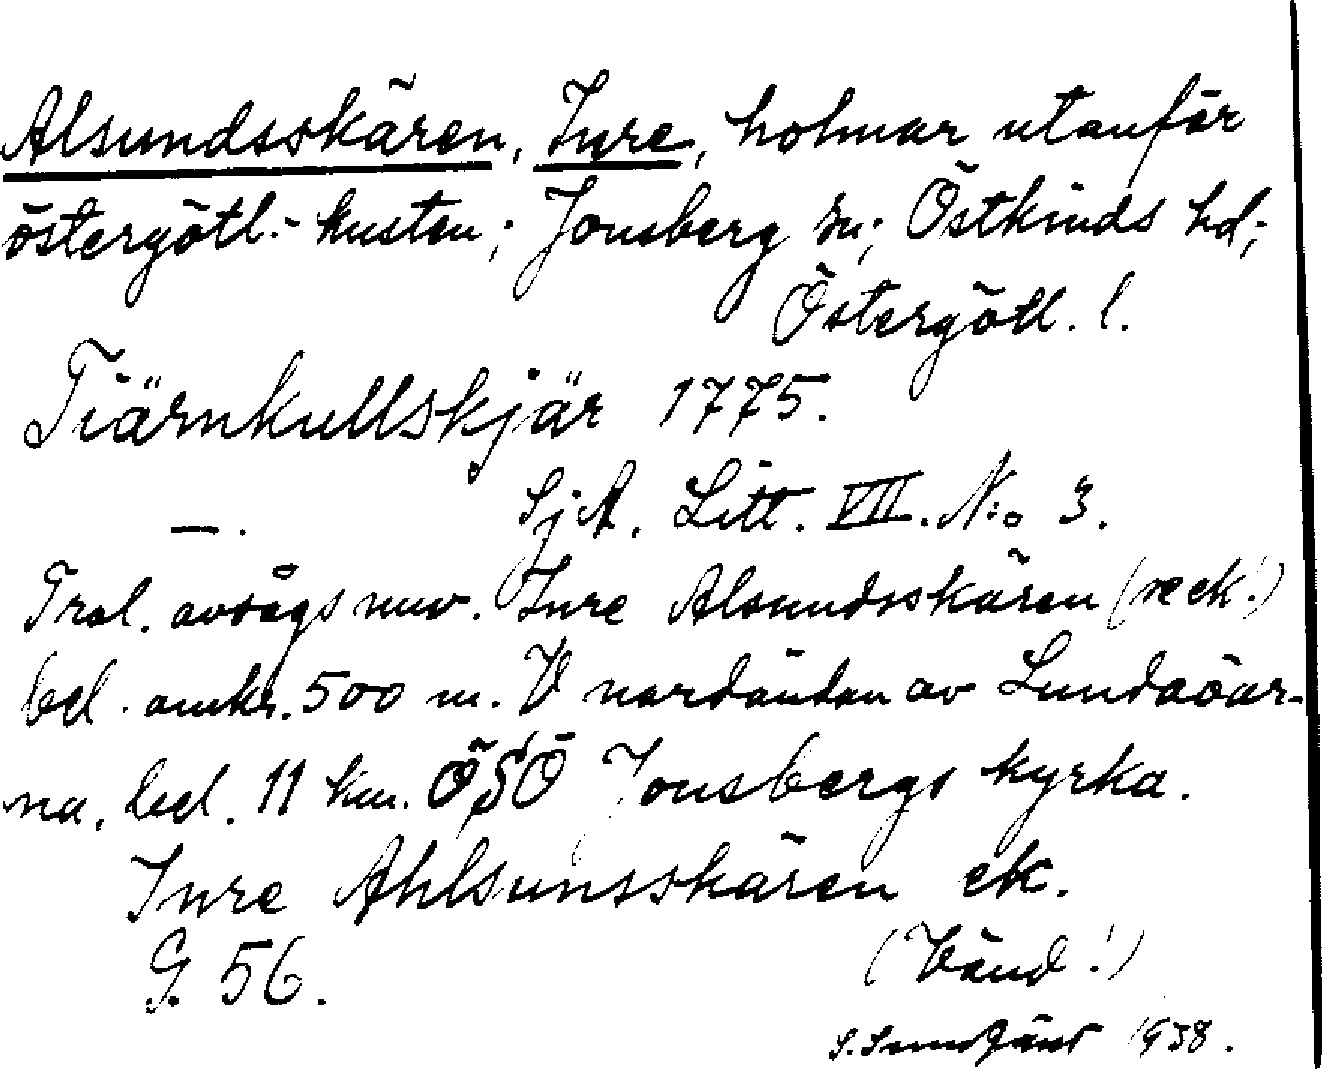 Alsundsskären, Inre, holmar utanför
östergötl.-kusten; Jonsberg sn; Östkinds hd;
Östergötl. l.
Tiärnkullskjär 1775.
—. SjA. Litt. VII. No 3.
Trol. avsågs nuv. Inre Alsundsskären (se ek!)
bel. omkr. 500 m. V nordändan av Lundaöar-
na, bel. 11 km. ÖSÖ Jonsbergs kyrka.
Inre Ahlsunsskären ek.
G. 56. (Vänd!)
1938.